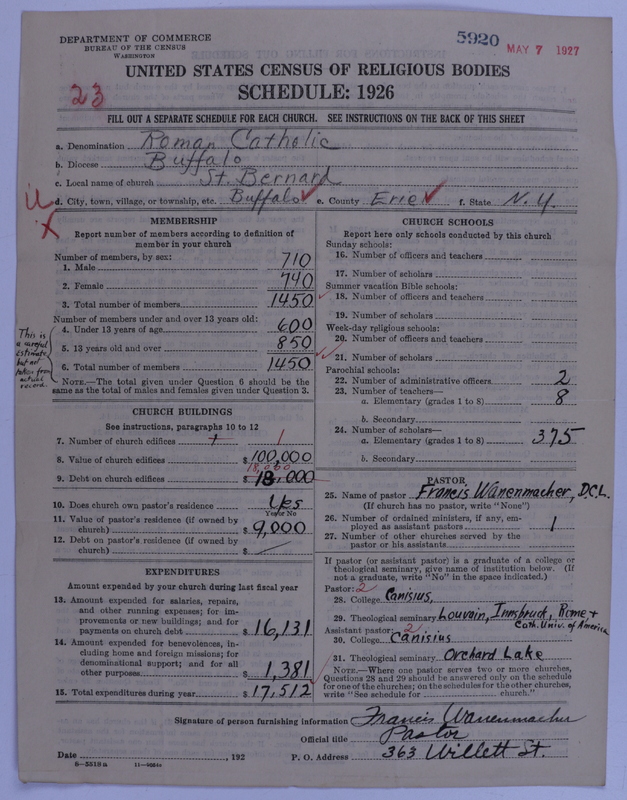 DEPARTMENT OF COMMERCE
BUREAU OF THE CENSUS
WASHINGTON
5920
MAY 7 1927
UNITED STATES CENSUS OF RELIGIOUS BODIES
SCHEDULE: 1926
23
FILL OUT A SEPARATE SCHEDULE FOR EACH CHURCH. SEE INSTRUCTIONS ON THE BACK OF THIS SHEET
a. Denomination Roman Catholic
b. Diocese Buffalo
c. Local name of church St. Bernard
d. City, town, village, or township, etc. Buffalo e. County Erie f. State N.Y.
MEMBERSHIP
Report number of members according to definition of
member in your church
Number of members, by sex:
1. Male 710
2. Female 740
3. Total number of members 1450
Number of members under and over 13 years old:
4. Under 13 years of age 600
5. 13 years old and over 850
6. Total number of members 1450
This is
a careful
estimate
but not
taken from
actual
record.
NOTE.—The total given under Question 6 should be the
same as the total of males and females given under Question 3.
CHURCH BUILDINGS
See instructions, paragraphs 10 to 12
7. Number of church edifices 1
8. Value of church edifices $ 100,000
18,000
9. Debt on church edifices $ 18,000
10. Does church own pastor's residence Yes
Yes or No
11. Value of pastor's residence (if owned by
church) $ 9,000
12. Debt on pastor's residence (if owned by
church) $
EXPENDITURES
Amount expended by your church during last fiscal year
13. Amount expended for salaries, repairs,
and other running expenses; for im-
provements or new buildings; and for
payments on church debt $ 16,131
14. Amount expended for benevolences, in-
cluding home and foreign missions; for
denominational support; and for all
other purposes $ 1,381
15. Total expenditures during year $ 17,512
CHURCH SCHOOLS
Report here only schools conducted by this church
Sunday schools:
16. Number of officers and teachers
17. Number of scholars
Summer vacation Bible schools:
18. Number of officers and teachers
19. Number of scholars
Week-day religious schools:
20. Number of officers and teachers
21. Number of scholars
Parochial schools:
22. Number of administrative officers 2
23. Number of teachers—
a. Elementary (grades 1 to 8) 8
b. Secondary
24. Number of scholars—
a. Elementary (grades 1 to 8) 375
b. Secondary
PASTOR
25. Name of pastor Francis Wanenmacher, D.C.L.
(If church has no pastor, write "None")
26. Number of ordained ministers, if any, em-
ployed as assistant pastors 1
27. Number of other churches served by the
pastor or his assistants
If pastor (or assistant pastor) is a graduate of a college or
theological seminary, give name of institution below. (If
not a graduate, write "No" in the space indicated.)
Pastor: 2
28. College Canisius,
29. Theological seminary Louvain, Innsbruck, Rome +
Cath. Univ. of America
Assistant pastor: 2
30. College Canisius
31. Theological seminary Orchard Lake
NOTE.—Where one pastor serves two or more churches,
Questions 28 and 29 should be answered only on the schedule
for one of the churches; on the schedules for the other churches,
write "See schedule for church."
Signature of person furnishing information Francis Wanenmacher
Official title Pastor
Date , 192 P. O. Address 363 Willett St.